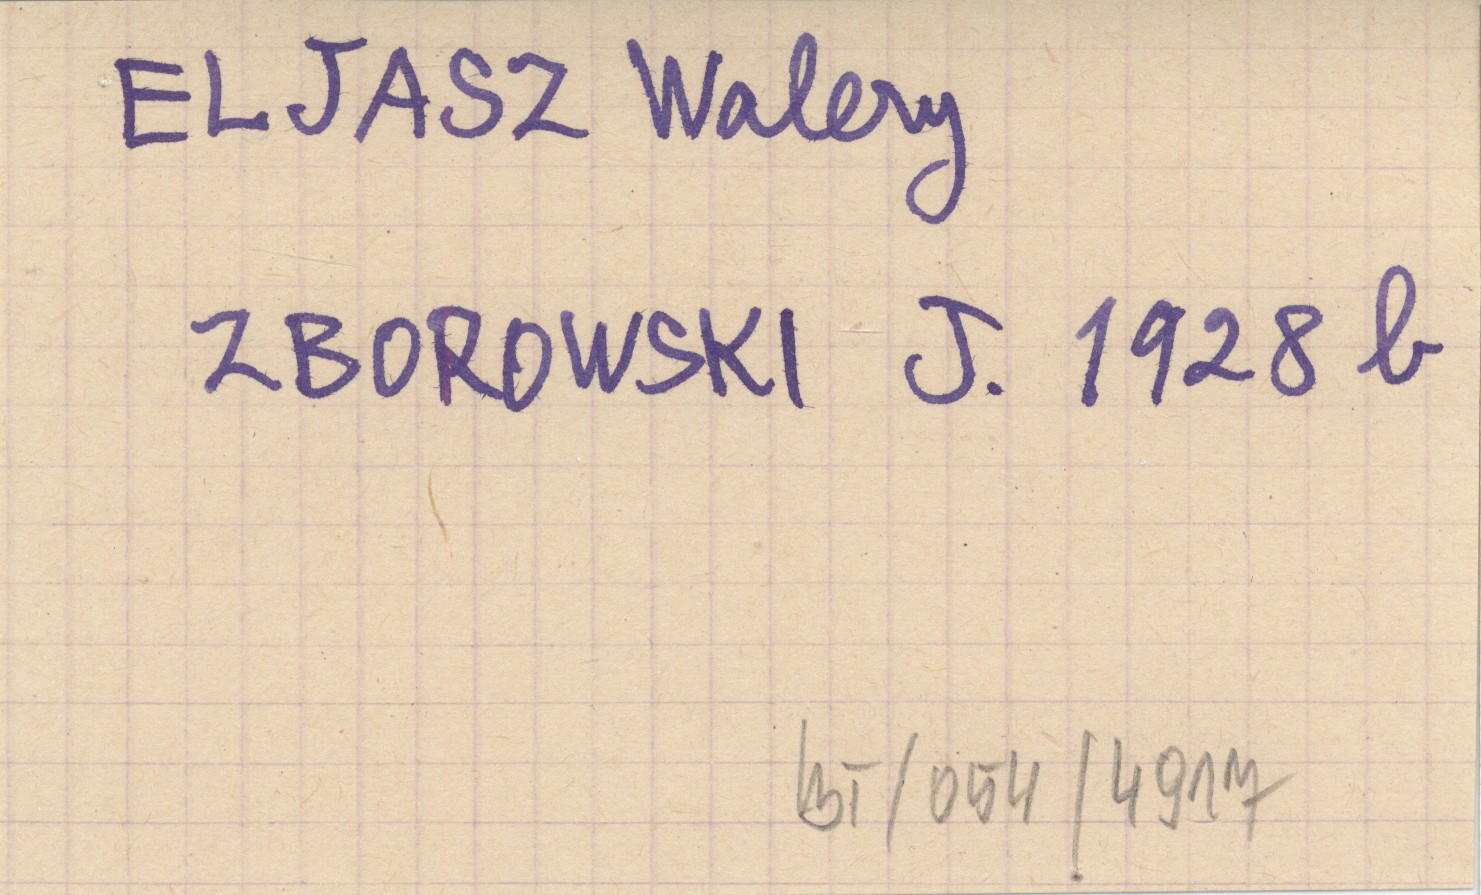 ELJASZ Walery
ZBOROWSKI J. 1928 b
BI/054/4917